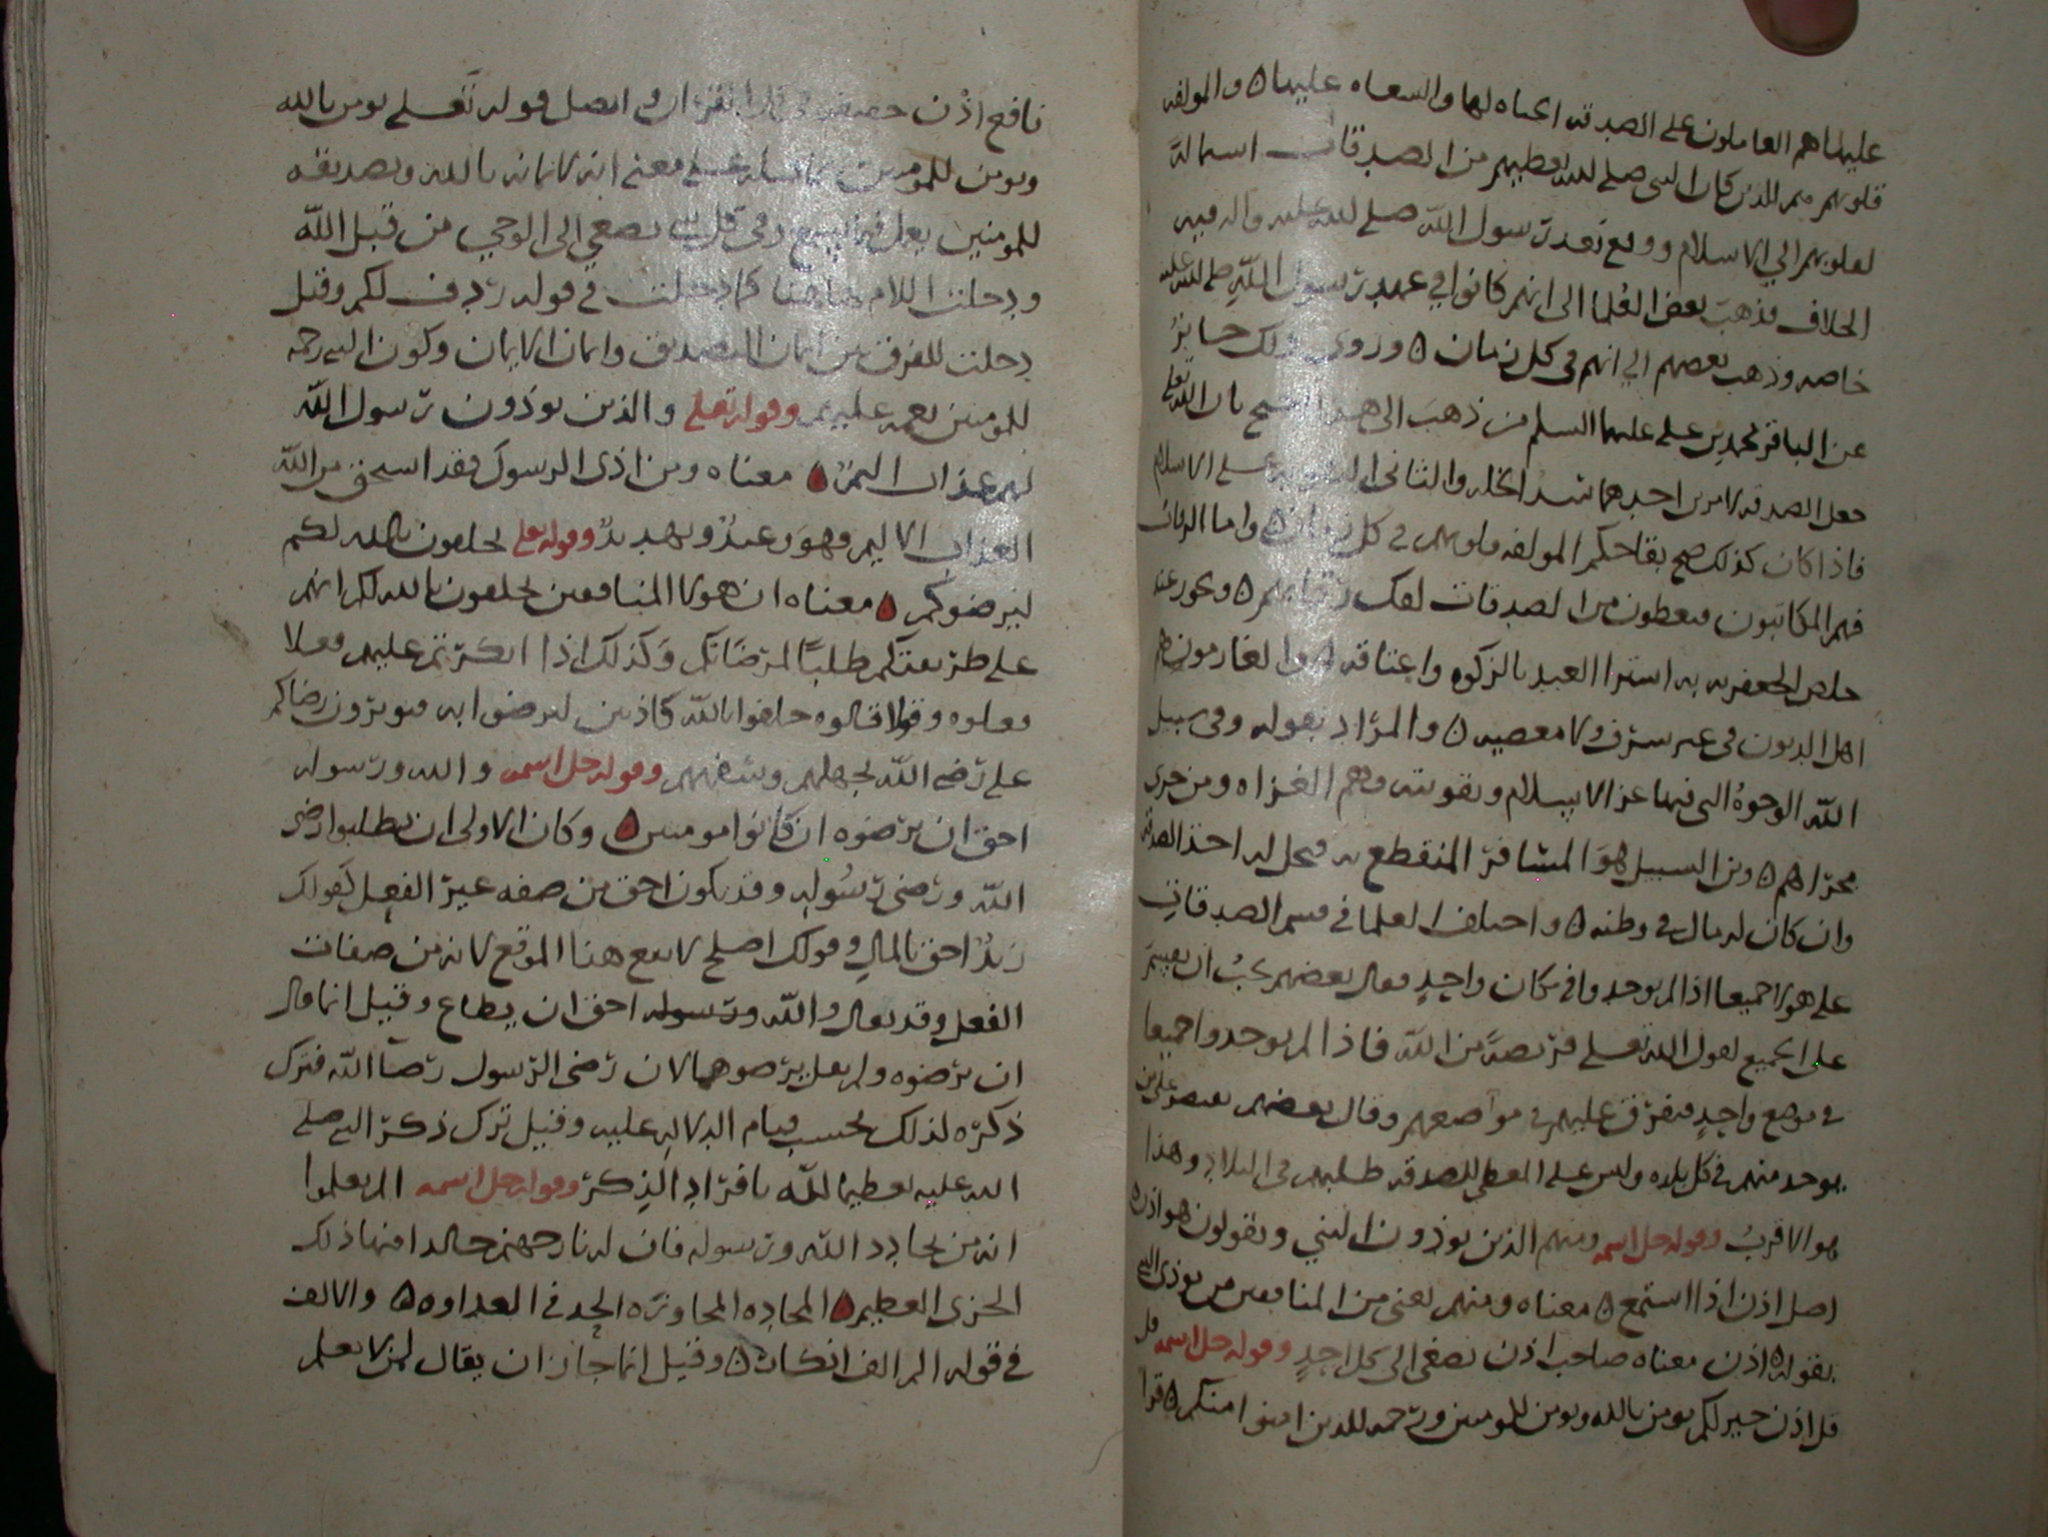 عليها هم العاملون على الصدقه الجباه لها والسعاه عليها ۵ والمولفه
قلوبهم هم الذين كان النبي صلى الله يعطيهم من الصدقات استماله
لقلوبهم الى الاسلام ووقع بعد رسول الله صلى الله عليه واله فيهم
الخلاف فذهب بعض العلما الى انهم كانوا في عهد رسول الله صلى الله عليه
خاصه وذهب بعضهم الى انهم في كل زمان ۵ وروى ذلك جابر
عن الباقر محمد بن علي عليهما السلم من ذهب الى هذا بان الله تعلى
جعل الصدقه لامرين احدهما سد الخله والثاني على الاسلام
فاذا كان كذلك صح بقا حكم المولفه قلوبهم في كل زمان ۵ واما الرقاب
فهم المكاتبون فيعطون من الصدقات لفك رقابهم ۵ ويجوز عند
اشترا العبد بالزكوه واعتاقه ۵ والغارمون هم
اهل الديون في غير سرف ولا معصيه ۵ والمراد بقوله وفي سبيل
الله الوجوه التي فيها عز الاسلام وتقويته وهم الغزاه ومن جرى
مجراهم ۵ وابن السبيل هو المسافر المنقطع به فيحل له اخذ الصدقه
وان كان له مال في وطنه ۵ واختلف العلما في قسم الصدقات
على هولا جميعا اذا لم يوجدوا في مكان واحد فقال بعضهم يجب ان يقسم
على الجميع لقول الله تعلى فريضة من الله فاذا لم يوجدوا جميعا
في موضع واحد فيفرق عليهم في مواضعهم وقال بعضهم يقتصر على من
يوجد منهم في كل بلده وليس على المعطي للصدقه طلبهم في البلاد وهذا
هو الاقرب وقوله جل اسمه ومنهم الذين يوذون النبي ويقولون هو اذن ۵
اصل اذن اذا استمع ۵ معناه ومنهم يعني من المنافقين من يوذي النبي
بقوله اذن معناه صاحب اذن يصغي الى كل احد وقوله جل اسمه قل
قل اذن خير لكم يومن بالله ويومن للمومنين ورحمه للذين امنوا منكم ۵ قرا
نافع اذن القران واتصل قوله تعلى يومن بالله
ويومن للمومنين بما قبله على معنى انه لايمانه بالله وتصديقه
للمومنين يعمل فيما يسمع يصغي الى الوحي من قبل الله
ودخلت اللام هاهنا كما دخلت في قوله ردف لكم وقيل
دخلت للفرق بين ايمان التصديق وايمان الامان وكون النبي رحمه
للمومنين نعمه عليهم وقوله تعلى والذين يوذون رسول الله
لهم عذاب اليم ۵ معناه ومن اذى الرسول فقد استحق من الله
العذاب الاليم وهو وعيد وتهديد وقوله تعلى يحلفون بالله لكم
ليرضوكم ۵ معناه ان هولا المنافقين يحلفون بالله لكم انهم
على طريقتكم طلبا لمرضاتكم وكذلك اذا انكرتم عليهم فعلا
فعلوه وقولا قالوه حلفوا بالله كاذبين ليرضوا به فيوثرون رضاكم
على رضى الله لجهلهم وسفههم وقوله جل اسمه والله ورسوله
احق ان يرضوه ان كانوا مومنين ۵ وكان الاولى ان يطلبوا رضى
الله ورضى رسوله وقد يكون احق من صفه غير الفعل كقولك
زيد احق بالمال وقولك اصلح لا يقع هذا الموقع لانه من صفات
الفعل وقد يقال والله ورسوله احق ان يطاع وقيل انما قال
ان يرضوه ولم يقل يرضوهما لان رضى الرسول رضا الله فترك
ذكره لذلك بحسب قيام الدلاله عليه وقيل ترك ذكر النبي صلى
الله عليه تعظيما لله بافراد الذكر وقوله جل اسمه الم يعلموا
انه من يحادد الله ورسوله فان له نار جهنم خالدا فيها ذلك
الخزي العظيم ۵ المحاده المجاوزه الحد في العداوه ۵ والالف
في قوله الم الف انكار ۵ وقيل انما جاز ان يقال لمن لا يعلم